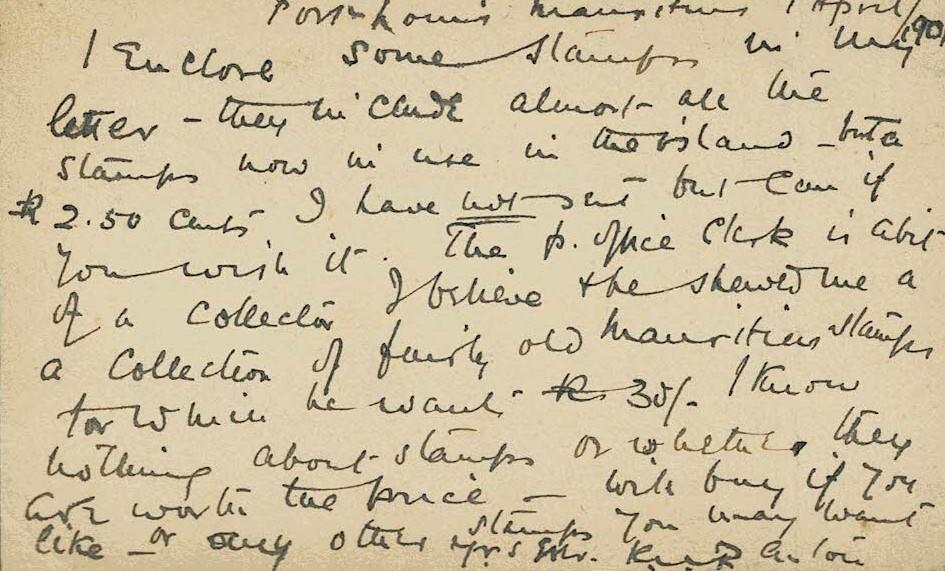 Port-Louis Mauritius 1 April/901
I Enclose some stamps in my
letter - they include almost all the
stamps now in use in the island - but a
R 2.50 cents I have not sent but can if
you wish it. The p. office clerk is a bit
of a collector I believe & he shewed me a
a collection of fairly old Mauritius stamps
for which he wants R 30/-. I know
nothing about stamps or whether they
are worth the price - will buy if you
like - or any other stamps you may want
yrs